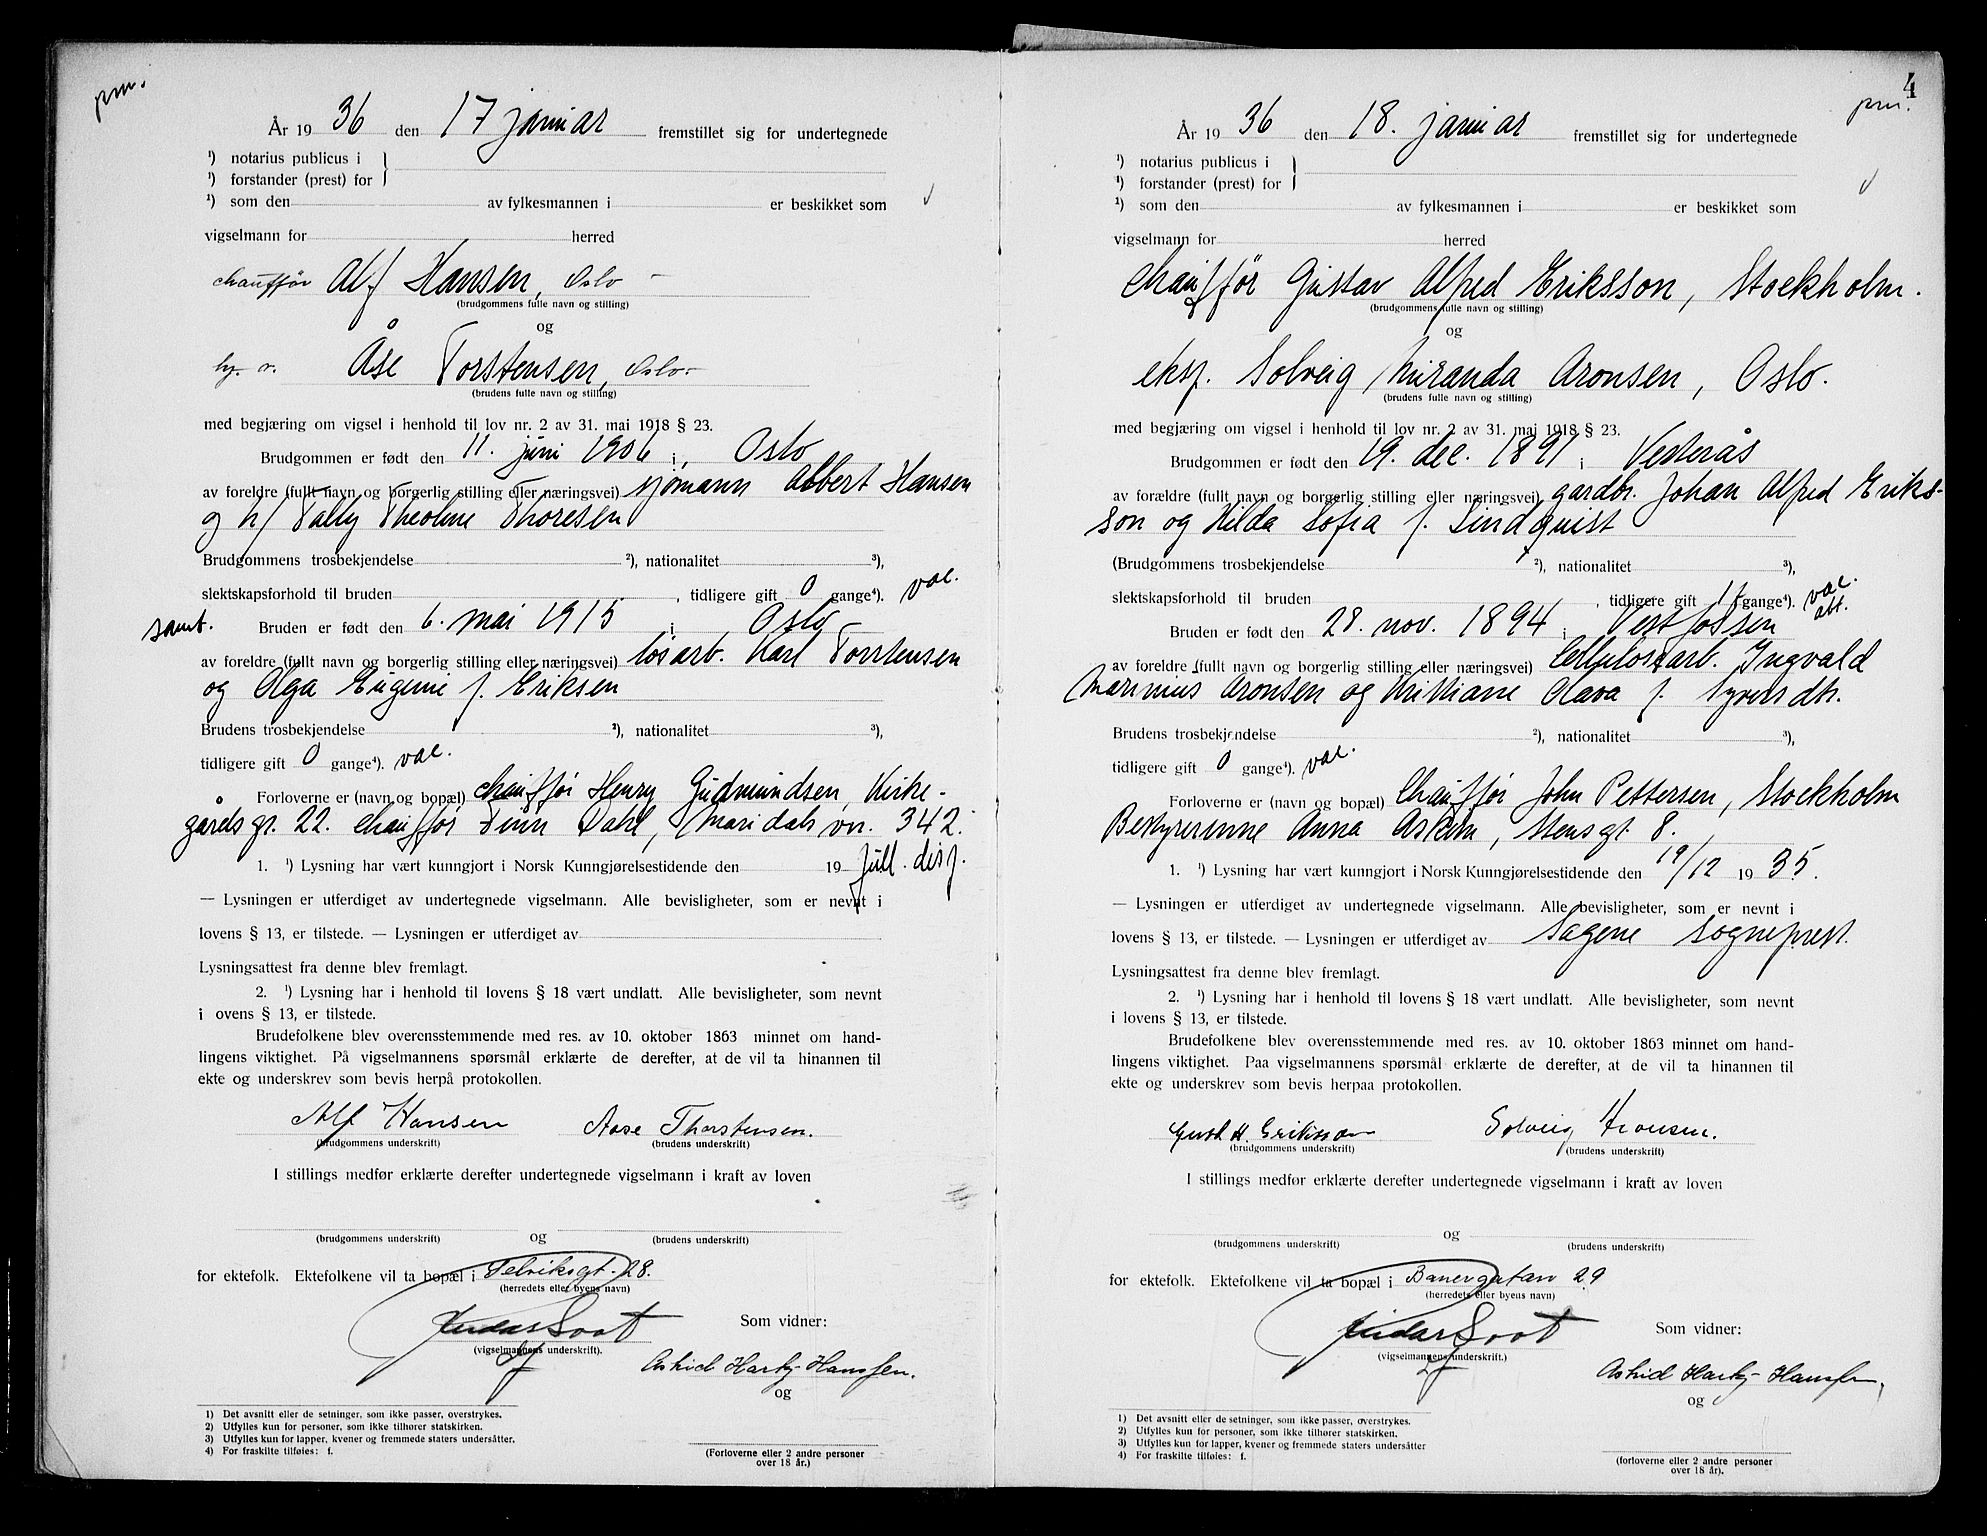 pm.
År 19 36 den 17 januar fremstillet sig for undertegnede
¹) notarius publicus i }
¹) forstander (prest) for
¹) som den av fylkesmannen i er beskikket som
vigselmann for herred
chauffør Alf Hansen, Oslo
(brudgommens fulle navn og stilling)
og
Åse Torstensen, Oslo
(brudens fulle navn og stilling)
med begjæring om vigsel i henhold til lov nr. 2 av 31. mai 1918 § 23.
Brudgommen er født den 11. juni 1906 i Oslo
av foreldre (fullt navn og borgerlig stilling eller næringsvei) sjømann Albert Hansen
og h/ Tally Theoline Thoresen
Brudgommens trosbekjendelse ²), nationalitet ³),
slektskapsforhold til bruden , tidligere gift 0 gange⁴). vac.
samt. Bruden er født den 6. mai 1915 i Oslo
av foreldre (fullt navn og borgerlig stilling eller næringsvei) løsarb. Karl Torstensen
og Olga Eugenie f. Eriksen
Brudens trosbekjendelse ²), nationalitet ³),
tidligere gift 0 gange⁴). vac.
Forloverne er (navn og bopæl) chauffør Henry Gudmundsen, Kirke-
gårdsgt. 22. chauffør Finn Dahl, Maridalsvn. 342.
1. ¹) Lysning har vært kunngjort i Norsk Kunngjørelsestidende den 19 full. disp.
— Lysningen er utferdiget av undertegnede vigselmann. Alle bevisligheter, som er nevnt i
lovens § 13, er tilstede. — Lysningen er utferdiget av
Lysningsattest fra denne blev fremlagt.
2. ¹) Lysning har i henhold til lovens § 18 vært undlatt. Alle bevisligheter, som nevnt
i ovens § 13, er tilstede.
Brudefolkene blev overensstemmende med res. av 10. oktober 1863 minnet om hand-
lingens viktighet. På vigselmannens spørsmål erklærte de derefter, at de vil ta hinannen til
ekte og underskrev som bevis herpå protokollen.
Alf Hansen Aase Thorstensen.
(brudgommens underskrift) (brudens underskrift)
I stillings medfør erklærte derefter undertegnede vigselmann i kraft av loven
og
(brudgommens underskrift) (brudens underskrift)
for ektefolk. Ektefolkene vil ta bopæl i 28.
(herredets eller byens navn)
Som vidner:
(vigselmannens underskrift).
Astrid Harby-Hanssen.
og
1) Det avsnitt eller de setninger, som ikke passer, overstrykes.
2) Utfylles kun for personer, som ikke tilhører statskirken.
3) Utfylles kun for lapper, kvener og fremmede staters undersåtter.
4) For fraskilte tilføies: f.
(Forloverne eller 2 andre personer
over 18 år.)
4
pm.
År 19 36 den 18. januar fremstillet sig for undertegnede
¹) notarius publicus i }
¹) forstander (prest) for
¹) som den av fylkesmannen i er beskikket som
vigselmann for herred
chauffør Gustav Alfred Eriksson, Stockholm.
(brudgommens fulle navn og stilling)
og
eksp. Solveig Miranda Aronsen, Oslo.
(brudens fulle navn og stilling)
med begjæring om vigsel i henhold til lov nr. 2 av 31. mai 1918 § 23.
Brudgommen er født den 19. dec. 1891 i Vesterås
av forældre (fullt navn og borgerlig stilling eller næringsvei) gardbr. Johan Alfred Eriks-
son og Hilda Sofia f. Lindquist
(Brudgommens trosbekjendelse ²), nationalitet ³),
slektskapsforhold til bruden , tidligere gift 1 f gange⁴). vac.
att.
Bruden er født den 28. nov. 1894 i Vestfossen
av foreldre (fullt navn og borgerlig stilling eller næringsvei) Cellulosearb. Ingvald
Marinius Aronsen og Kristiane Olava f. Syversdtr.
Brudens trosbekjendelse ²), nationalitet ³),
tidligere gift 0 gange⁴). vac.
Forloverne er (navn og bopæl) Chauffør John Pettersen, Stockholm
Bestyrerinne Anna Askim, Stensgt. 8.
1. ¹) Lysning har vært kunngjort i Norsk Kunngjørelsestidende den 19/12 1935.
— Lysningen er utferdiget av undertegnede vigselmann. Alle bevisligheter, som er nevnt i
lovens § 13, er tilstede. — Lysningen er utferdiget av Sagene sogneprest.
Lysningsattest fra denne blev fremlagt.
2. ¹) Lysning har i henhold til lovens § 18 vært undlatt. Alle bevisligheter, som nevnt
i lovens § 13, er tilstede.
Brudefolkene blev overensstemmende med res. av 10. oktober 1863 minnet om hand-
lingens viktighet. Paa vigselmannens spørsmål erklærte de derefter, at de vil ta hinannen til
ekte og underskrev som bevis herpaa protokollen.
Gust. A. Eriksson Solveig Aronsen.
(brudgommens underskrift) (brudens underskrift)
I stillings medfør erklærte derefter undertegnede vigselmann i kraft av loven
og
(brudgommens underskrift) (brudens underskrift)
for ektefolk. Ektefolkene vil ta bopæl i Banergatan 29
(herredets eller byens navn)
Som vidner:
(vigselmannens underskrift.)
Astrid Harby-Hanssen,
og
1) Det avsnitt eller de setninger, som ikke passer, overstrykes.
2) Utfylles kun for personer, som ikke tilhører statskirken.
3) Utfylles kun for lapper, kvener og fremmede staters undersåtter
4) For fraskilte tilføies: f.
(forloverne eller 2 andre personer
over 18 år).